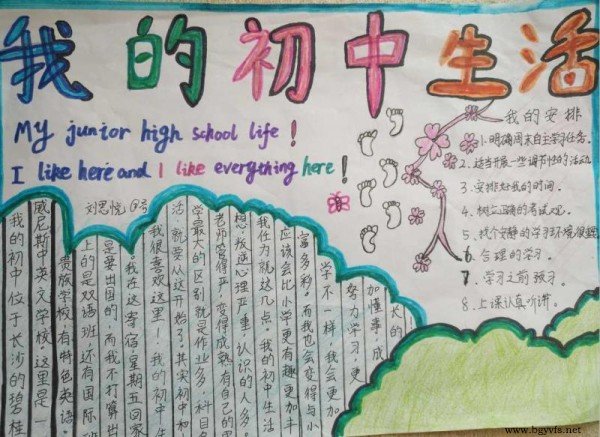 我的初中生活
My junior high school life!
I like here and I like everything here!
刘思悦
我的初中位于长沙的碧桂
威尼斯中英文学校,这里是一
贵族学校,有特色英语。
上的是双语班,还有国际班
是要出国的,而我不打算出
。我在这寄宿星期五回家
我很喜欢这里!我的初中生
活,就要从这开始了。其实初中和
学最大的区别就是作业多,科目
老师管得严,变得成熟有自己的思
想,叛逆心理严重,认识的人多。
我任为就这几点。我的初中生活
应该会比小学更有趣更加丰
富多彩。而我也会变得与小
学不一样,我会更加
努力学习,更
加懂事,成
长的
我的安排
1.明确周末自主学习任务。
2.适当开展一些调节性的活动
3.安排我的时间。
4.树立正确的考试
5.找个安静的学习环境
6.合理的学习。
7.学习之前预习。
8.上课认真听讲。
www.bgyvfs.net